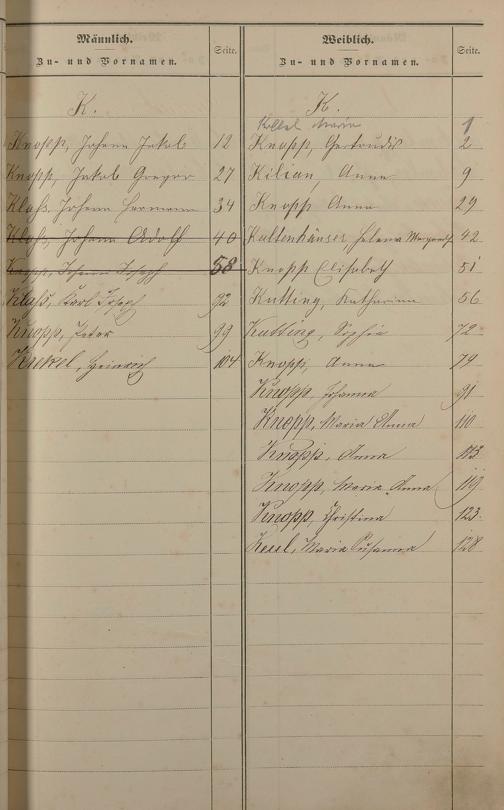 Männlich.
Zu- und Vornamen.
Seite.
K.
Knopp, Johann Jakob 12
Knopp, Jakob Gregor 27
Klaß, Johann Hermann 34
Klaß, Johann Adolf 40
Knopp, Johann Joseph 58
Klaß, Karl Joseph 92
Knopp, Peter 99
Heinrich 104
Weiblich.
Zu- und Vornamen.
Seite.
K.
Maria 1
Knopp, Gertrudis 2
Kilian, Anna 9
Knopp Anna 29
Kaltenhäuser, Helena 42
Knopp Elisabeth 51
Kutting, Katharina 56
Kutting, Sophia 72
Knopp, Anna 79
Knopp, Johanna 91
Knopp, Maria Anna 110
Knopp, Anna 113
Knopp, Maria Anna 119
Knopp, Christina 123.
Maria Susanna 128